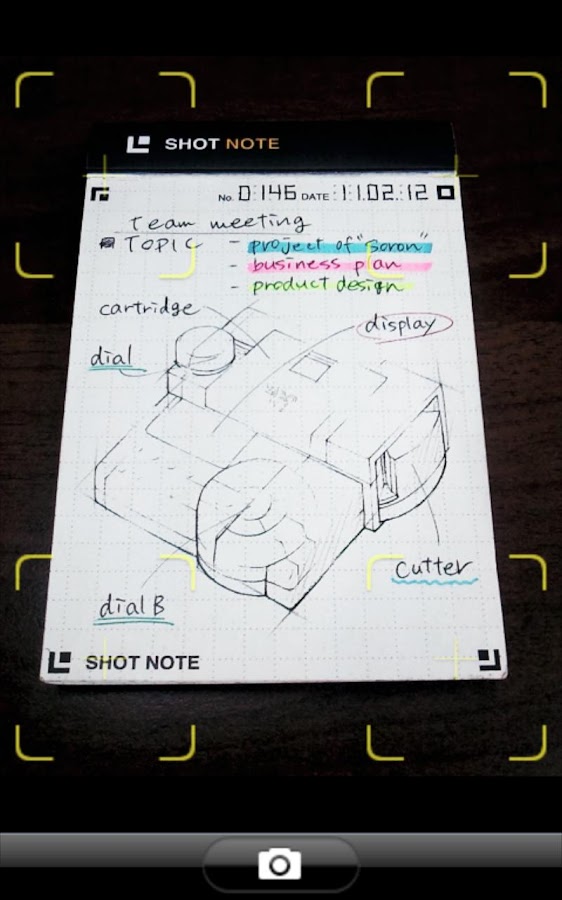 SHOT NOTE
No. 0:146 DATE:11.02.12
Team meeting
TOPIC - project of "Boron"
- business plan
- product design
cartridge
display
dial
cutter
dial B
SHOT NOTE